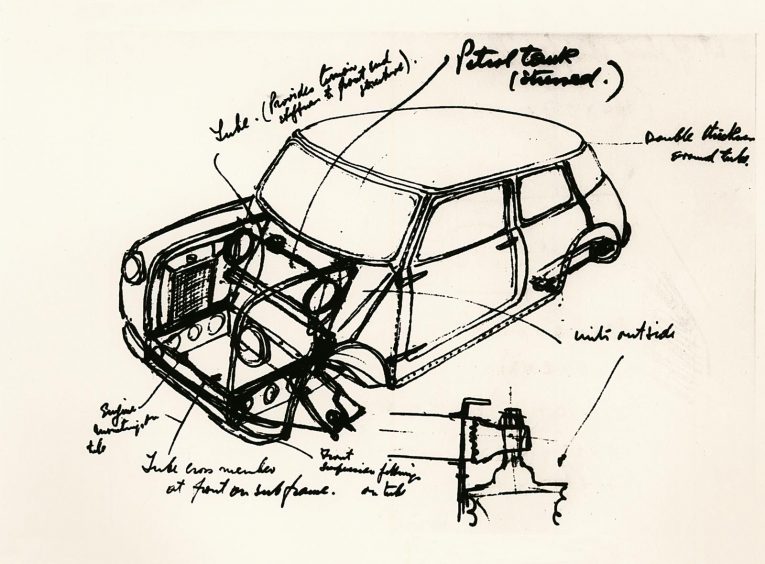 Petrol tank
Tube. (Provides torsion and
stiffness to front end
structure).
Double
around tube.
outside
Engine
mounting on
tube
Tube cross member
at front on subframe.
Front
suspension fittings
on tube